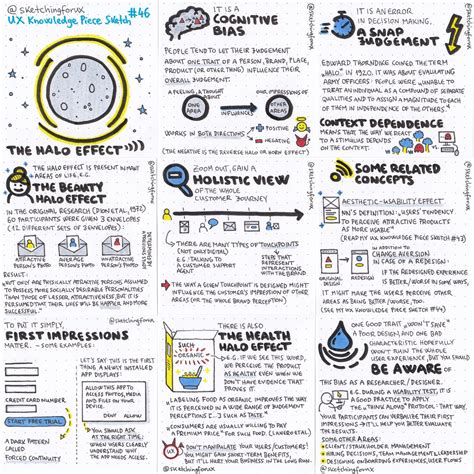 @ sketchingforux
UX Knowledge Piece Sketch #46
THE HALO EFFECT
IT IS A
COGNITIVE
BIAS
PEOPLE TEND TO LET THEIR JUDGEMENT
ABOUT ONE TRAIT OF A PERSON, BRAND, PLACE,
PRODUCT (OR OTHER THING) INFLUENCE THEIR
OVERALL JUDGEMENT:
A FEELING, A THOUGHT
ABOUT
ONE
AREA
INFLUENCE
OUR IMPRESSIONS OF
OTHER
AREAS
WORKS IN BOTH DIRECTIONS
POSITIVE
NEGATIVE
(THE NEGATIVE IS THE REVERSE HALO OR HORN EFFECT)
@sketchingforux
IT IS AN ERROR
IN DECISION MAKING,
A SNAP
JUDGEMENT
EDWARD THORNDIKE COINED THE TERM
"HALO" IN 1920. IT WAS ABOUT EVALUATING
ARMY OFFICERS: PEOPLE WERE "UNABLE TO
TREAT AN INDIVIDUAL AS A COMPOUND OF SEPARATE
QUALITIES AND TO ASSIGN A MAGNITUDE TO EACH
OF THEM IN INDEPENDENCE OF THE OTHERS."
CONTEXT DEPENDENCE
MEANS THAT THE WAY WE REACT
TO A STIMULUS DEPENDS
ON THE CONTEXT.
@sketchingforux
THE HALO EFFECT IS PRESENT IN MANY
AREAS OF LIFE, E.G.
THE BEAUTY
HALO EFFECT
IN THE ORIGINAL RESEARCH (DION ET AL., 1972)
60 PARTICIPANTS WERE GIVEN 3 ENVELOPES
(12 DIFFERENT SETS OF 3 ENVELOPES)
ATTRACTIVE
PERSON'S PHOTO
AVERAGE
PERSON'S PHOTO
UNATTRACTIVE
PERSON'S PHOTO
RESULT:
"NOT ONLY ARE PHYSICALLY ATTRACTIVE PERSONS ASSUMED
TO POSSESS MORE SOCIALLY DESIRABLE PERSONALITIES
THAN THOSE OF LESSER ATTRACTIVENESS, BUT IT IS
PRESUMED THAT THEIR LIVES WILL BE HAPPIER AND MORE
SUCCESSFUL."
@sketchingforux
ZOOM OUT, GAIN A
HOLISTIC VIEW
OF THE WHOLE
CUSTOMER JOURNEY
THERE ARE MANY TYPES OF TOUCHPOINTS
(NOT ONLY DIGITAL)
E.G. TALKING TO
A CUSTOMER
SUPPORT AGENT
STEPS THAT
REPRESENT
INTERACTIONS
WITH THE BRAND
THE WAY A CLIENT TOUCHPOINT IS DESIGNED MIGHT
INFLUENCE THE CUSTOMERS' IMPRESSION OF OTHER
AREAS (OR THE WHOLE BRAND PERCEPTION)
SOME RELATED
CONCEPTS
AESTHETIC-USABILITY EFFECT
NN'S DEFINITION: "USERS TENDENCY
TO PERCEIVE ATTRACTIVE PRODUCTS
AS MORE USABLE"
(READ MY UX KNOWLEDGE PIECE SKETCH #43)
ORIGINAL
DESIGN
REDESIGN
CHANGE AVERSION
IN CASE OF A REDESIGN:
IF THE REDESIGNED EXPERIENCE
IS BETTER/WORSE IN SOME WAYS,
IT MIGHT MAKE THE USERS PERCEIVE OTHER
AREAS AS BEING BETTER/WORSE, TOO.
(SEE MY UX KNOWLEDGE PIECE SKETCH #44)
@sketchingforux
TO PUT IT SIMPLY,
FIRST IMPRESSIONS
MATTER - SOME EXAMPLES:
CREDIT CARD NUMBER
START FREE TRIAL
A DARK PATTERN
CALLED
FORCED CONTINUITY
LET'S SAY THIS IS THE FIRST
THING A NEWLY INSTALLED
APP DISPLAYS:
ALLOW THIS APP TO
ACCESS PHOTOS, MEDIA
AND FILES ON YOUR
DEVICE.
DENY ALLOW
YOU SHOULD ASK
AT THE RIGHT TIME:
WHEN USERS CLEARLY
UNDERSTAND WHY
THE APP NEEDS ACCESS.
@sketchingforux
SUCH
ORGANIC
THERE IS ALSO
THE HEALTH
HALO EFFECT
E.G. IF WE SEE THIS WORD,
WE PERCEIVE THE PRODUCT
AS HEALTHY EVEN WHEN WE
DON'T HAVE EVIDENCE THAT
PROVES IT.
LABELING FOOD AS ORGANIC IMPROVES THE WAY
IT IS PERCEIVED IN A WIDE RANGE OF JUDGEMENT
PERCEPTIONS
CONSUMERS ARE USUALLY WILLING TO PAY
A PREMIUM PRICE FOR SUCH FOOD
DON'T MANIPULATE YOUR USERS/CUSTOMERS!
YOU MIGHT GAIN SHORT-TERM BENEFITS,
IT WILL HURT YOUR BUSINESS IN THE LONG RUN.
@sketchingforux
ONE GOOD TRAIT WON'T SAVE
A POOR DESIGN, AND ONE BAD
CHARACTERISTIC HOPEFULLY
WON'T RUIN THE WHOLE
USER EXPERIENCE, BUT YOU SHOULD
BE AWARE OF
THIS BIAS AS A RESEARCHER / DESIGNER.
E.G. DURING A USABILITY TEST, IT IS
A GOOD PRACTICE TO APPLY
THE "THINK ALOUD" PROTOCOL - THAT WAY,
YOUR PARTICIPANTS CAN VERBALIZE THEIR FIRST
IMPRESSIONS → IT WILL HELP YOU BETTER
EVALUATE THE RESULTS.
SOME OTHER AREAS:
CLIENT/STAKEHOLDER MANAGEMENT
HIRING DECISIONS, TEAM MANAGEMENT, LEADERSHIP
DESIGNING ONBOARDING EXPERIENCES, USER FLOWS
@sketchingforux